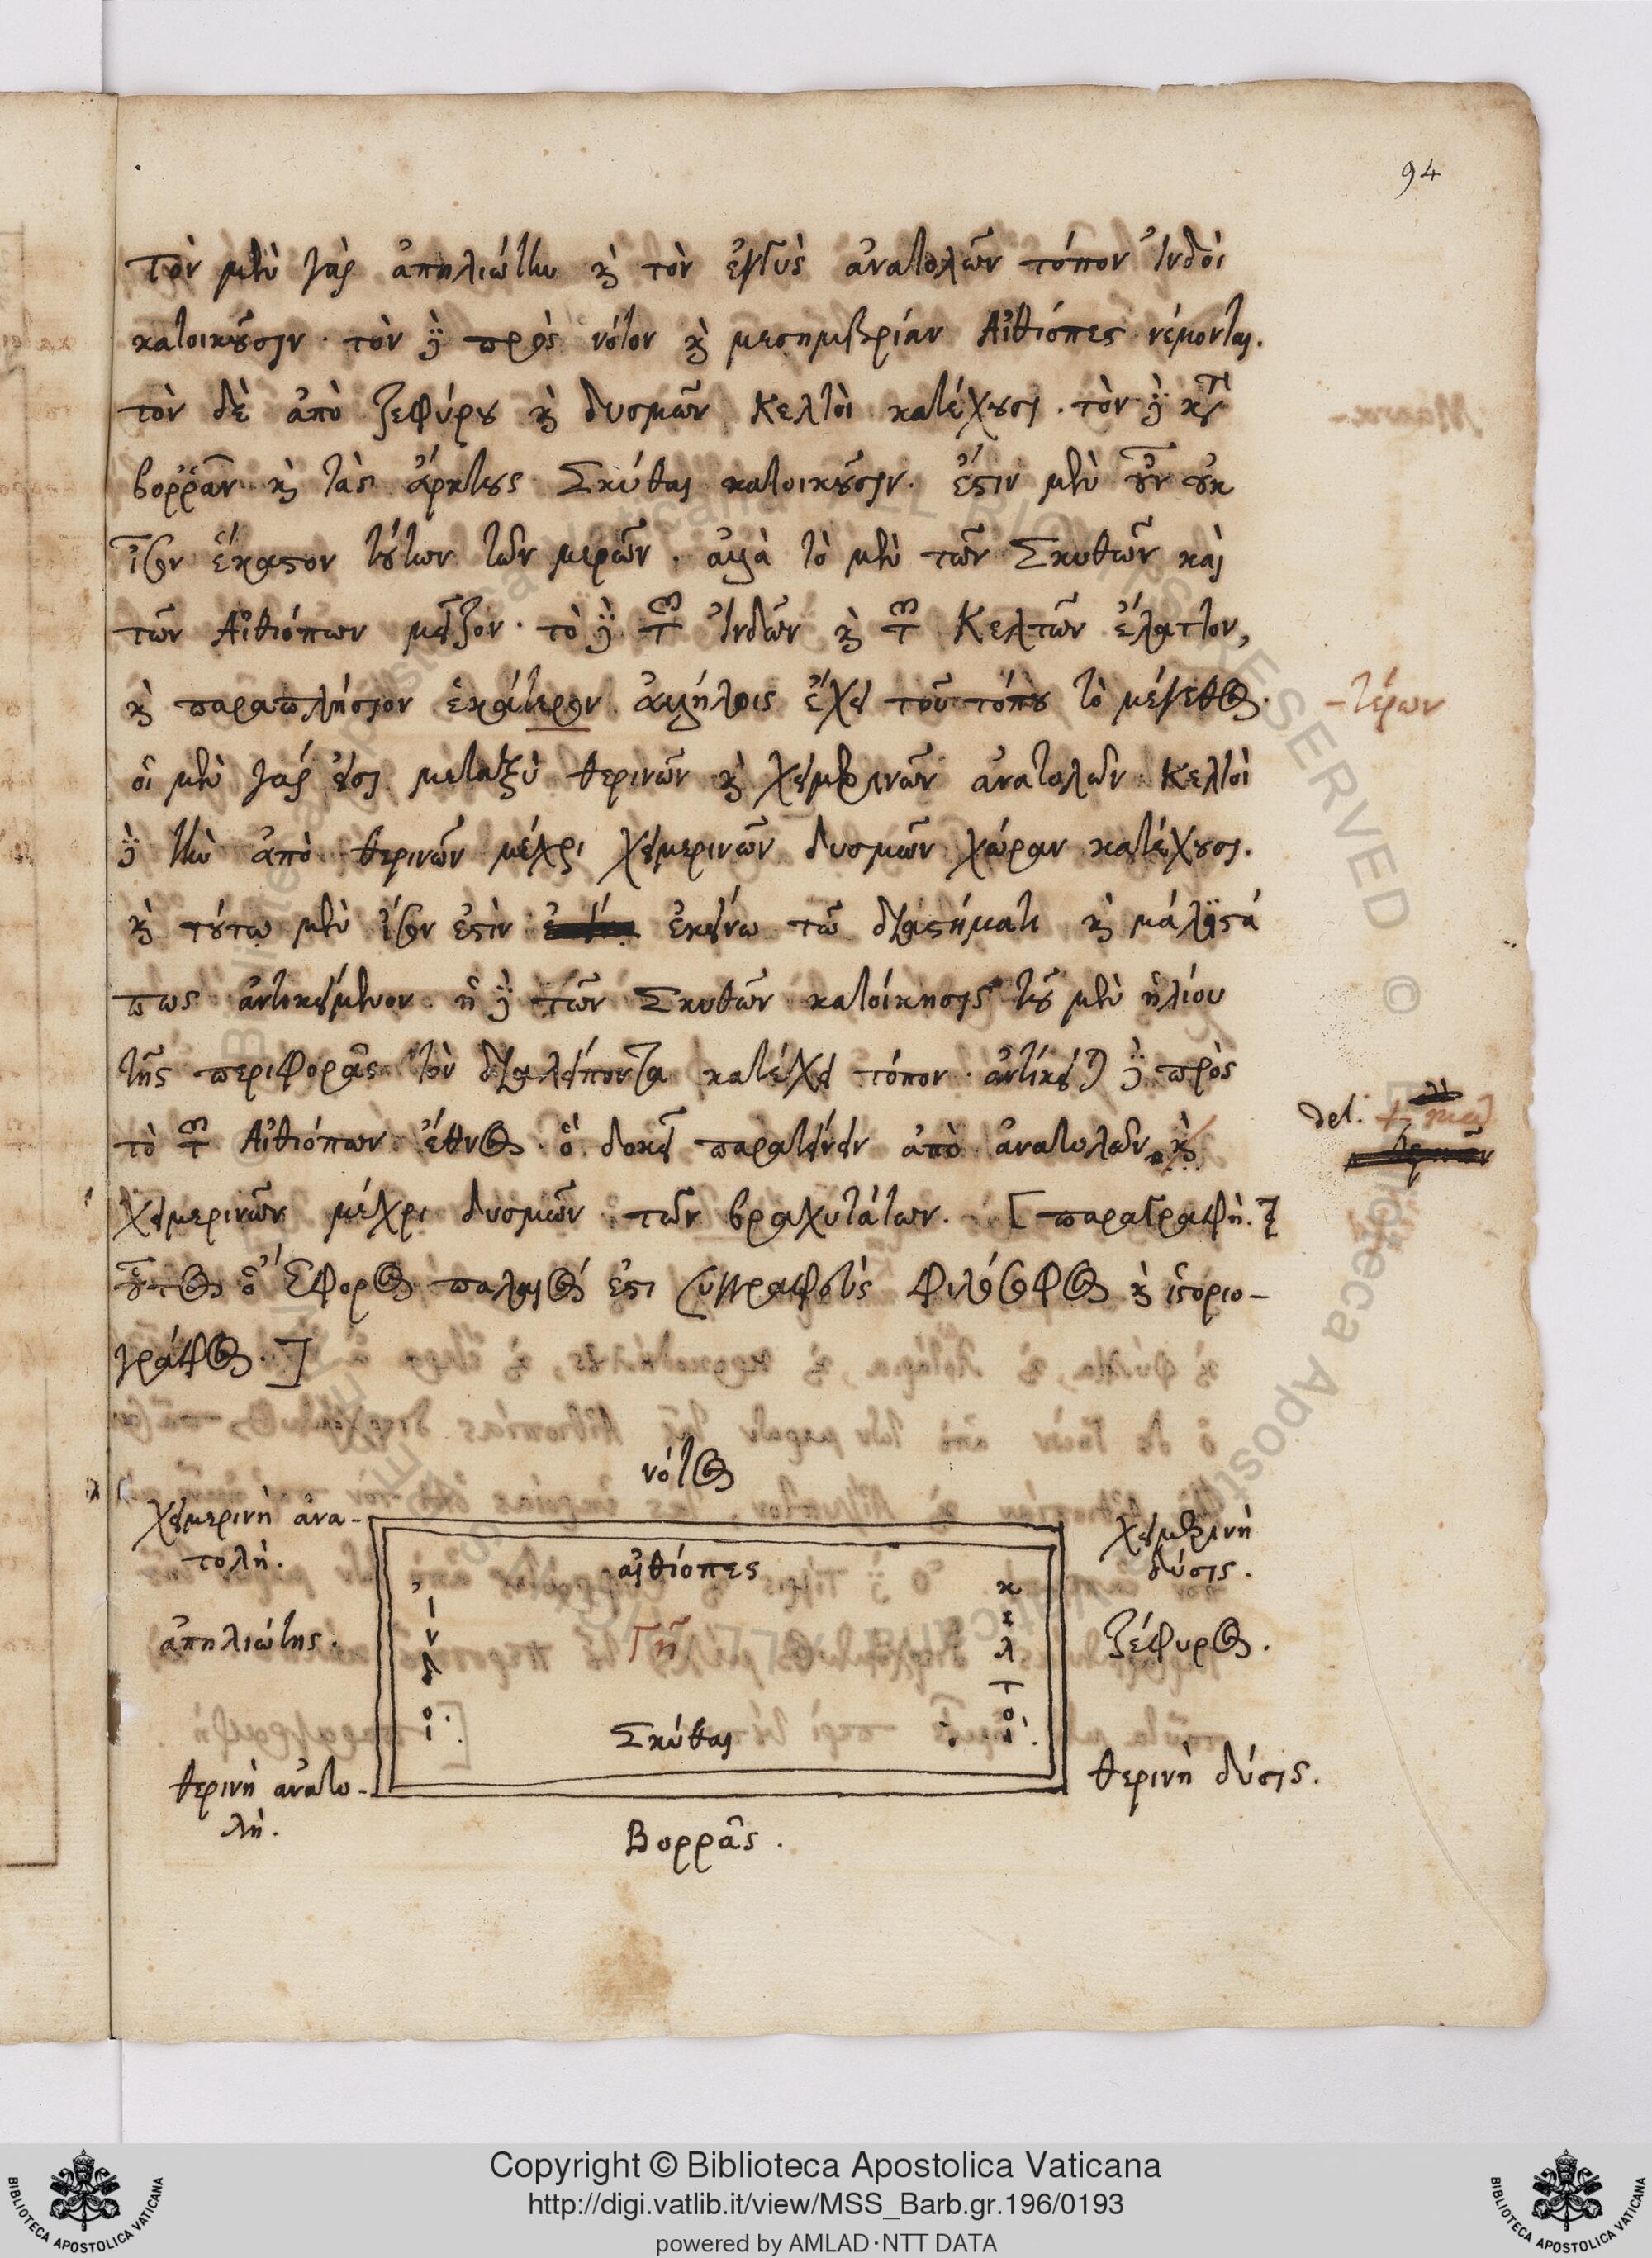 94
τὸν μὲν γὰρ ἀπηλιώτην κὶ τὸν ἐγγὺς ἀνατολῶν τόπον Ἰνδοὶ
κατοικοῦσιν. τὸν δὲ πρὸς νότον κὶ μεσημβρίαν Αἰθίοπες νέμονται.
τὸν δὲ ἀπὸ ζεφύρου κὶ δυσμῶν Κελτοὶ κατέχουσι. τὸν δὲ κατὰ
βοῤῥᾶν κὶ τὰς ἄρκτους Σκύθαι κατοικοῦσιν. ἔστιν μὲν οὖν οὐκ
ἴσον ἕκαστον τούτων τῶν μερῶν. ἀλλὰ τὸ μὲν τῶν Σκυθῶν καὶ
τῶν Αἰθιόπων μεῖζον. τὸ δὲ τῶν Ἰνδῶν κὶ τῶν Κελτῶν ἔλαττον,
κὶ παραπλήσιον ἑκάτερον ἀλλήλοις ἔχει τοῦ τόπου τὸ μέγεθος.
-τέρων
οἱ μὲν γάρ εἰσι μεταξὺ θερινῶν κὶ χειμερινῶν ἀνατολῶν. Κελτοὶ
δὲ τὴν ἀπὸ θερινῶν μέχρι χειμερινῶν δυσμῶν χώραν κατέχουσι.
κὶ τούτω μὲν ἴσον ἐστὶν ἐκείνω τῶ διαστήματι κὶ μάλιστά
πως ἀντικείμενον. ἡ δὲ τῶν Σκυθῶν κατοίκησις τοῦ μὲν ἡλίου
τῆς περιφορᾶς τὸν διαλείποντα κατέχει τόπον. ἀντίκειται δὲ πρὸς
τὸ τῶν Αἰθιόπων ἔθνος. ὃ δοκεῖ παρατείνειν ἀπὸ ἀνατολῶν κὶ
del.
χειμερινῶν μέχρι δυσμῶν τῶν βραχυτάτων. [παραγραφὴ.]
οὗτος ὁ Ἔφορος παλαιός ἐστι συγγραφεὺς φιλόσοφος κὶ ἱστοριο-
γράφος.]
νότος
χειμερινὴ ἀνα-
τολὴ.
χειμερινὴ
δύσις.
αἰθίοπες
ἀπηλιώτης.
ἰνδοὶ
Γῆ
κελτοὶ
ζέφυρος.
Σκύθαι
θερινὴ ἀνατο-
λὴ.
θερινὴ δύσις.
Βορρᾶς.
Copyright © Biblioteca Apostolica Vaticana
http://digi.vatlib.it/view/MSS_Barb.gr.196/0193
powered by AMLAD·NTT DATA
BIBLIOTECA APOSTOLICA VATICANA
BIBLIOTECA APOSTOLICA VATICANA